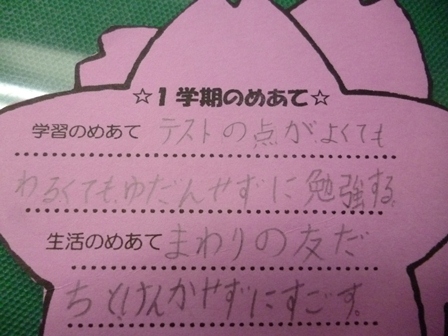 ☆1学期のめあて☆
学習のめあて テストの点がよくても
わるくても、ゆだんせずに勉強する。
生活のめあて まわりの友だ
ちとけんかせずにすごす。